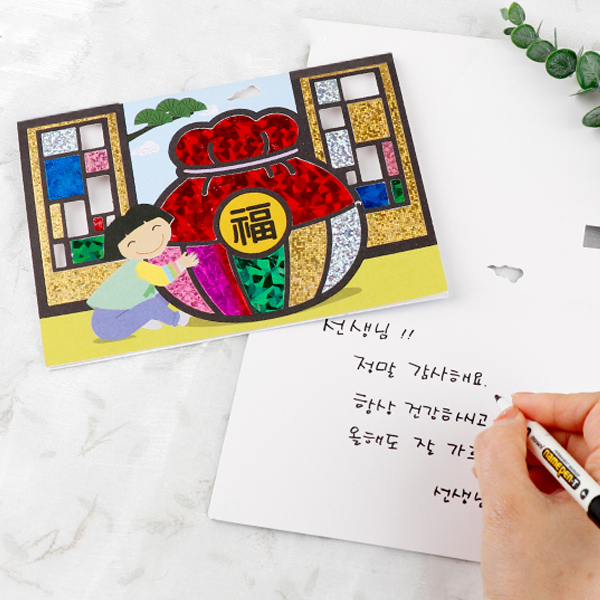 福
선생님 !!
정말 감사해요.
항상 건강하시고
올해도 잘 가르
선생님
namepen-T